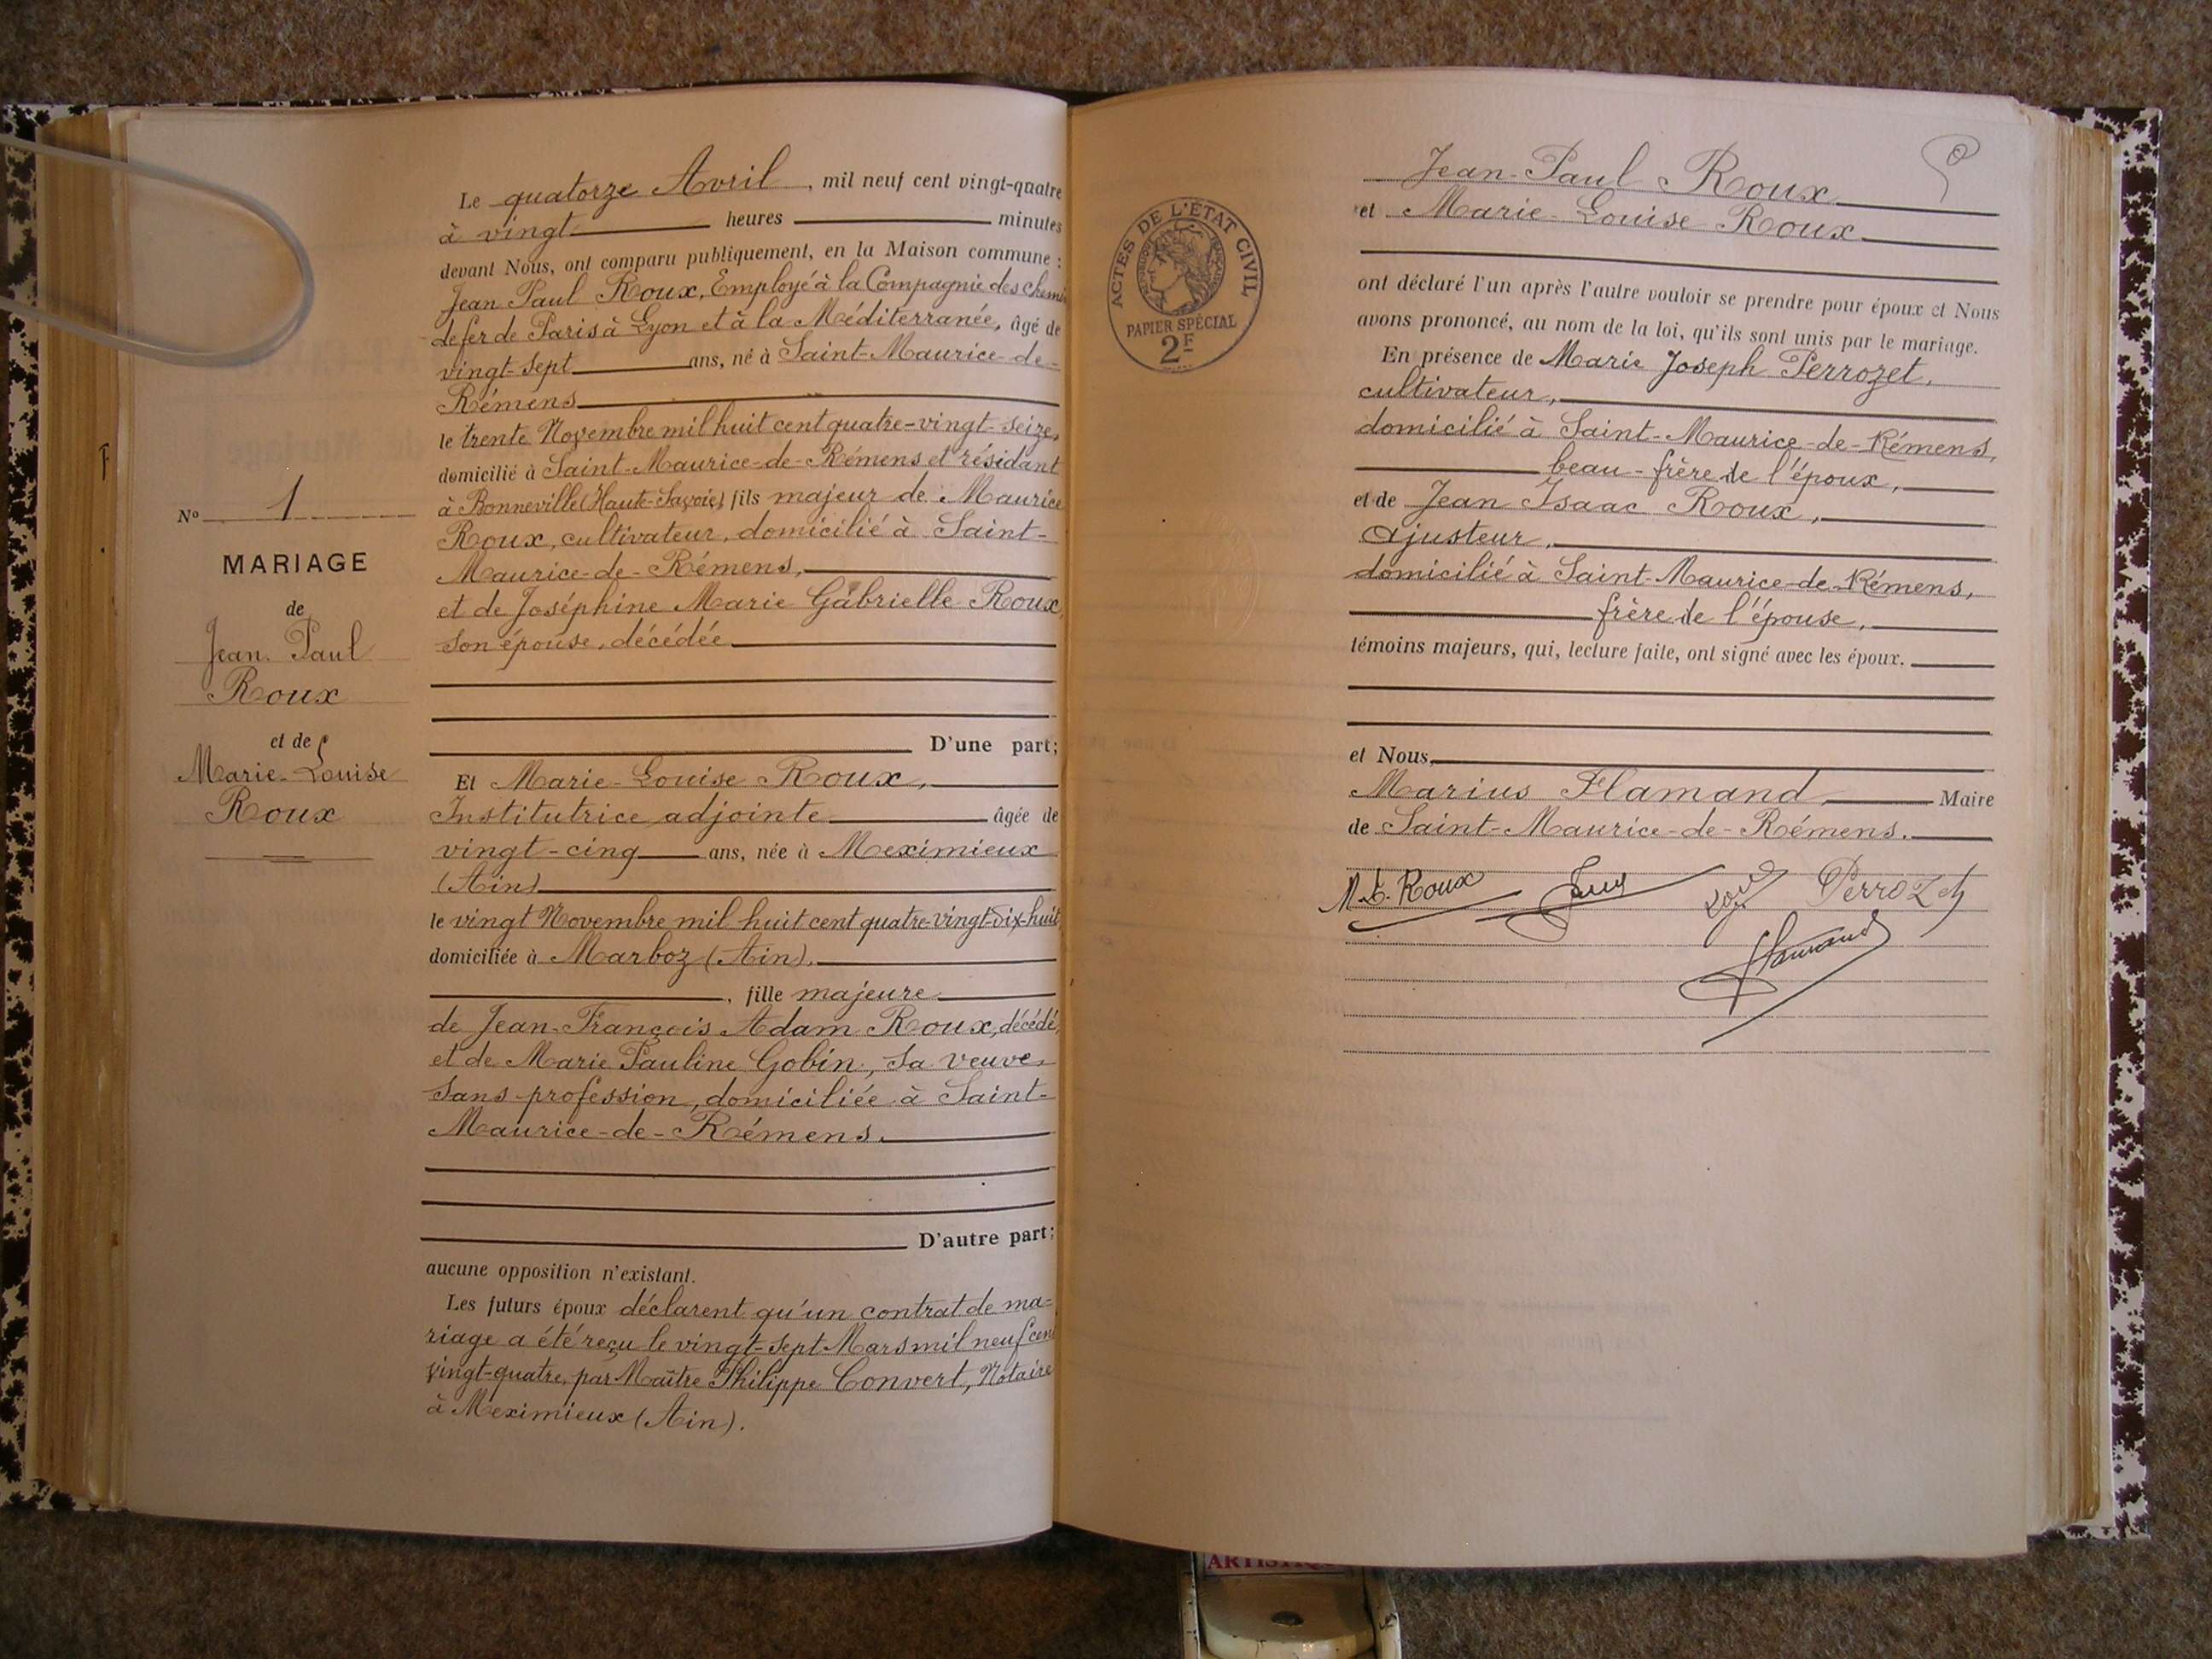 Le quatorze Avril, mil neuf cent vingt-quatre
à vingt heures minutes
devant Nous, ont comparu publiquement, en la Maison commune :
Jean Paul Roux, Employé à la Compagnie des chemi
de fer de Paris à Lyon et à la Méditerranée, âgé de
vingt-sept ans, né à Saint-Maurice-de-
Rémens
le trente Novembre mil huit cent quatre-vingt-seize,
domicilié à Saint-Maurice-de-Rémens et résidant
à Bonneville (Haute-Savoie), fils majeur de Maurice
Roux, cultivateur, domicilié à Saint-
Maurice-de-Rémens,
et de Joséphine Marie Gabrielle Roux,
son épouse, décédée
D'une part;
Et Marie-Louise Roux,
Institutrice adjointe âgée de
vingt-cinq ans, née à Meximieux
(Ain)
le vingt Novembre mil huit cent quatre-vingt-dix-huit
domiciliée à Marboz (Ain),
, fille majeure
de Jean-François Adam Roux, décédé,
et de Marie Pauline Gobin, sa veuve
sans profession, domiciliée à Saint-
Maurice-de-Rémens.
D'autre part;
aucune opposition n'existant.
Les futurs époux déclarent qu'un contrat de ma=
riage a été reçu le vingt-sept Mars mil neuf cent
vingt-quatre, par Maître Philippe Convert, Notaire
à Meximieux (Ain).
No 1
MARIAGE
de
Jean Paul
Roux
et de
Marie-Louise
Roux
ACTES DE L'ÉTAT CIVIL
PAPIER SPÉCIAL
2F
Jean-Paul Roux
et Marie-Louise Roux
ont déclaré l'un après l'autre vouloir se prendre pour époux et Nous
avons prononcé, au nom de la loi, qu'ils sont unis par le mariage.
En présence de Marie Joseph Perrozet,
cultivateur,
domicilié à Saint-Maurice-de-Rémens,
beau-frère de l'époux,
et de Jean Isaac Roux,
ajusteur,
domicilié à Saint-Maurice-de-Rémens,
frère de l'épouse,
témoins majeurs, qui, lecture faite, ont signé avec les époux.
et Nous,
Marius Flamand Maire
de Saint-Maurice-de-Rémens.
M.L. Roux Perrozet
Flamand